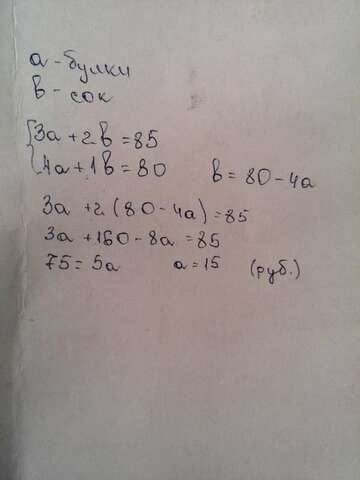 а - булки
в - сок
{3а + 2в = 85
{4а + 1в = 80 в = 80 - 4а
3а + 2(80 - 4а) = 85
3а + 160 - 8а = 85
75 = 5а а = 15 (руб.)